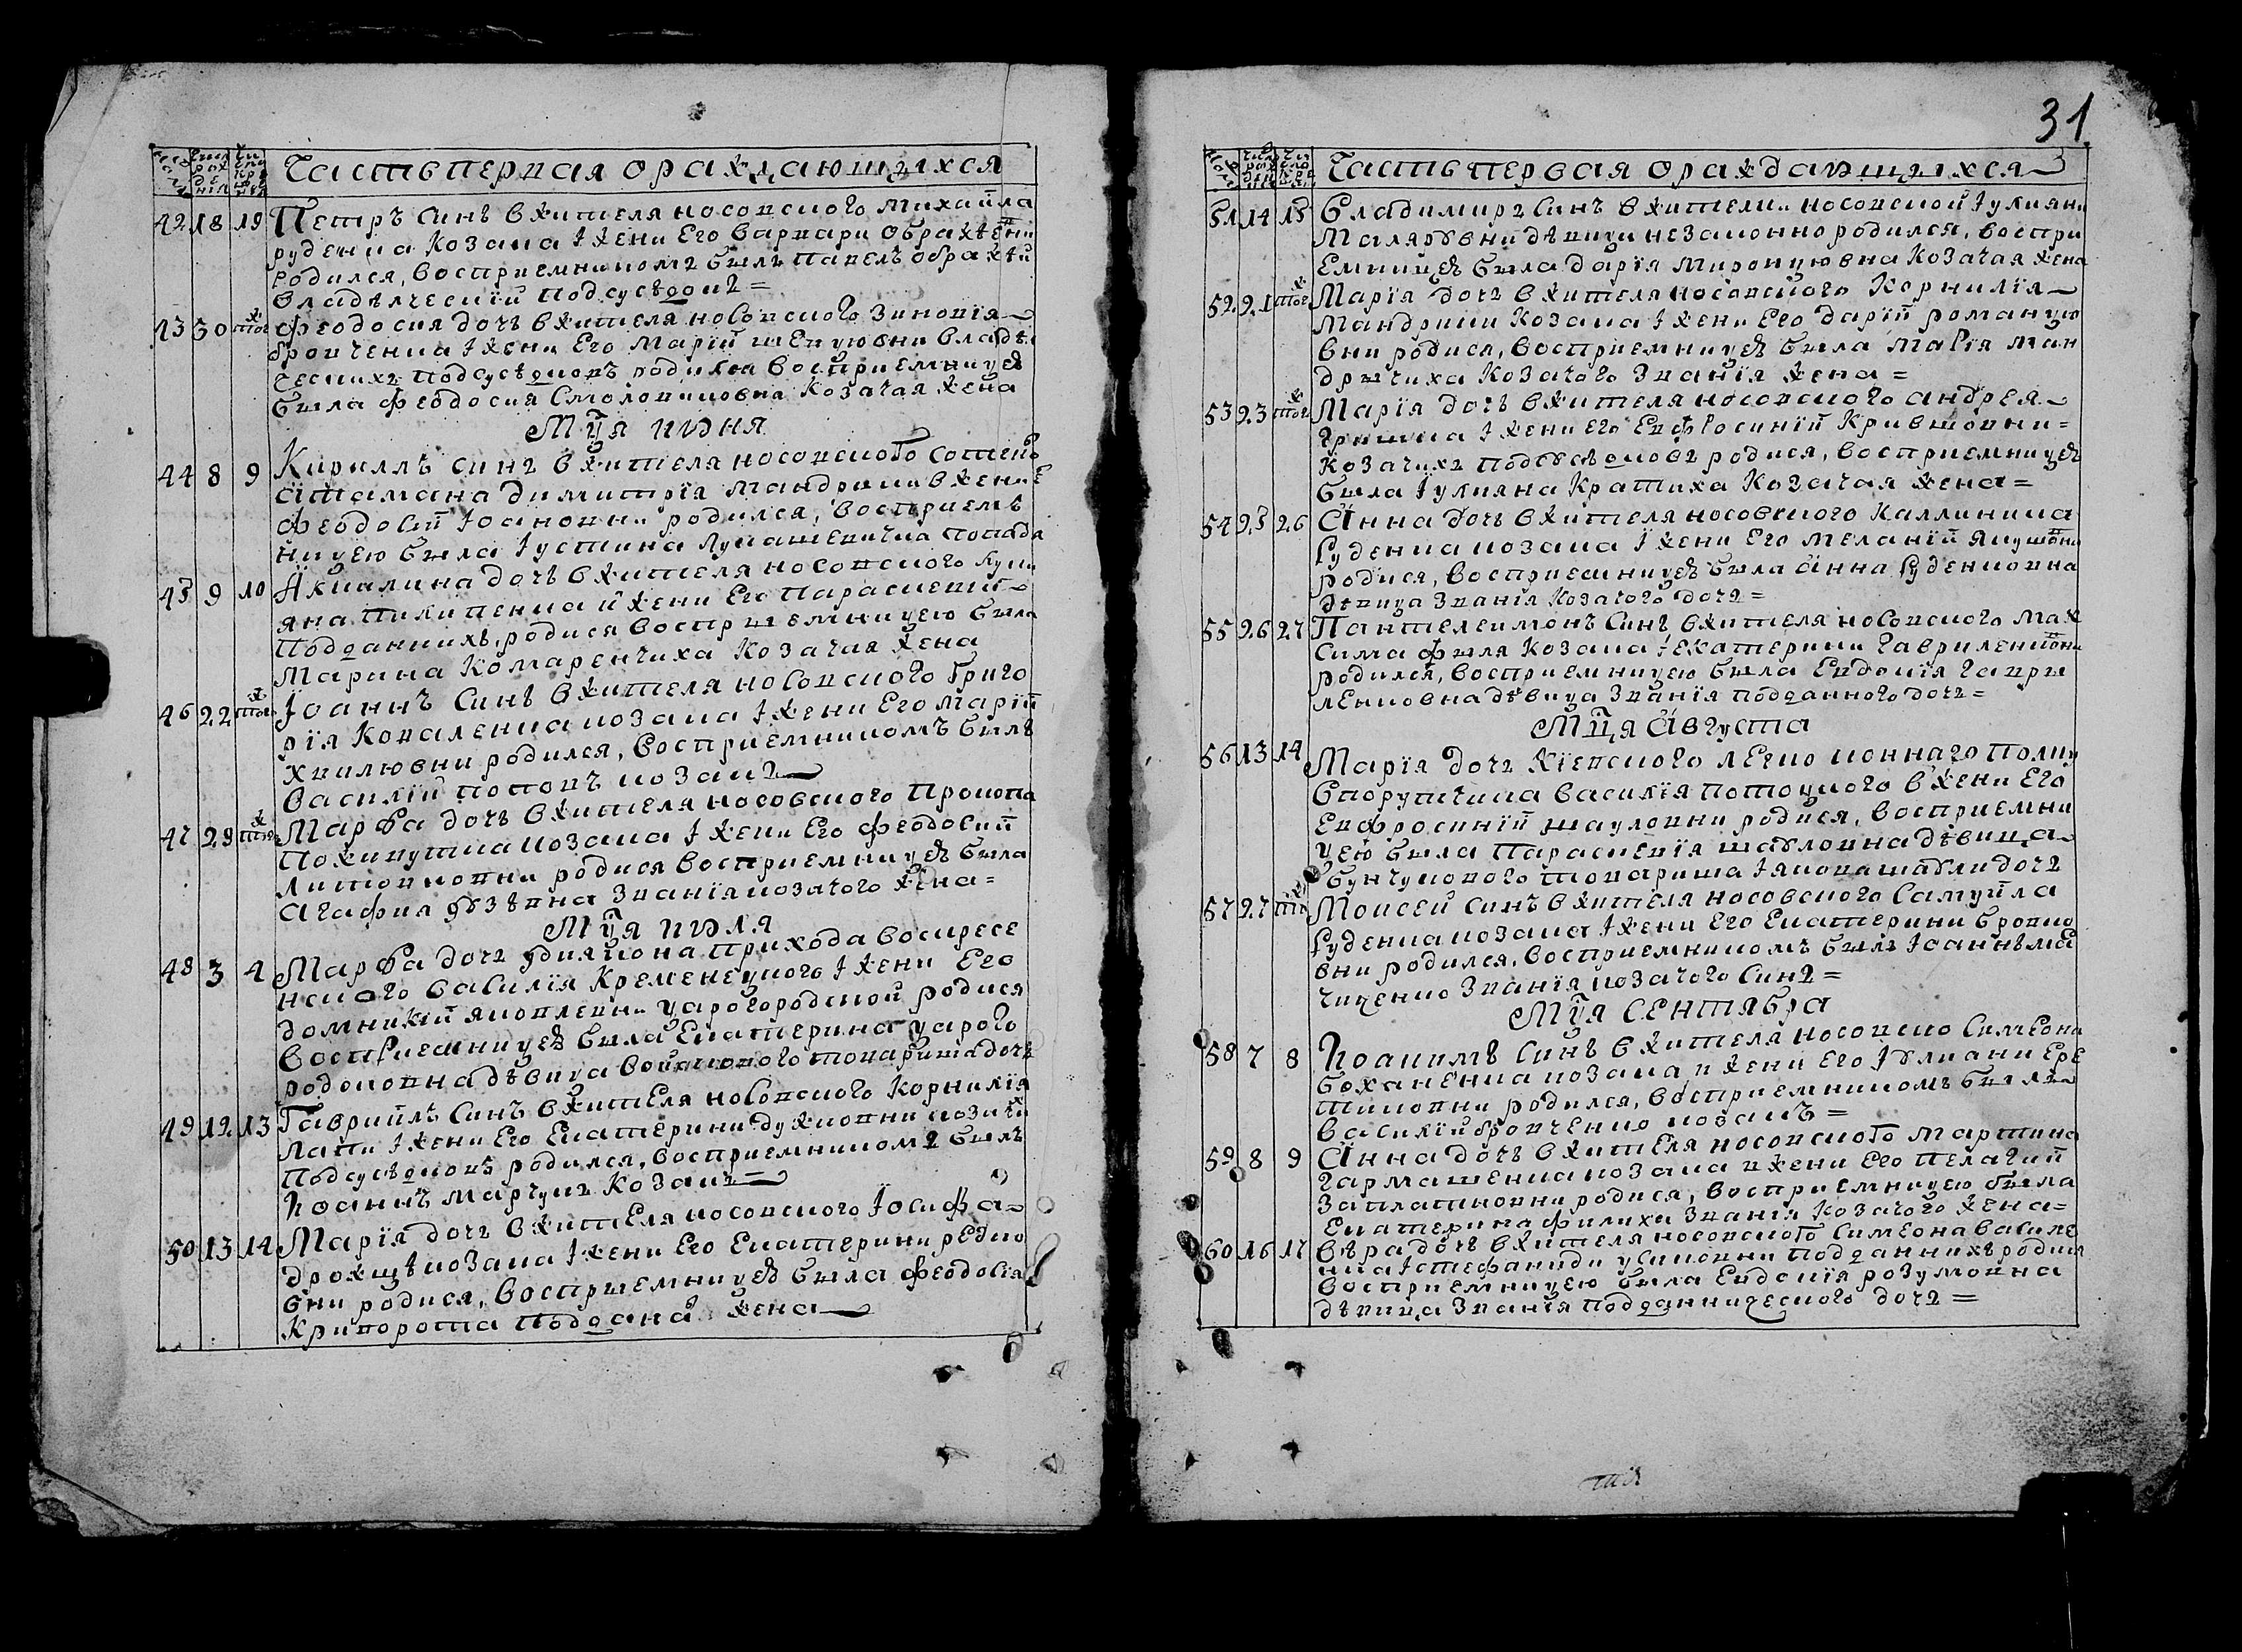 Часть первая о раждающихся
42 18 19 Петръ синъ в жителя носовского Михайла
руденка Козака і жени Его варвари Ображѣевни
родился, восприемникомъ былъ павелъ ображѣй
владѣлческій подсусѣдокъ =
43 30 тогож Феодосия дочъ в жителя носовского Зиновія
бровченка і жени Его Маріи
ческихъ подсусѣдковъ родился восприемницею
была Феодосия Смолониковна Козачая жена
Мця июня
44 8 9 Кириллъ синъ в жителя носовского сотен
атамана димитрія мандрики в жени Е
Феодосіи Іоановни родился, восприем
ницею была Іустина Лукашевичка попад
45 9 10 Акилина дочъ в жителя носовского
яна пилипенка и жени Его Параскевіи
подданнихъ, родися восприемницею была
Марина Комаренчиха Козачия жена
46 22 тогож Іоаннъ Синъ в жителя носовского Григо
рія Коваленка козака і жени Его Маріи
хвилювни родился, восприемникомъ былъ
василій поповъ козакъ
47 29 тогож Марфа дочъ в жителя носовского прокопа
козака і жени Его феодосии
родися восприемницею была
Агафия званія козачого жена =
Мця июля
48 3 4 Марфа дочъ дияйона прихода воскресе
нского василія Кременецкого і жени Его
домникіи яковлевни царогородской родися
восприемницею была Екатерина царого
родсковна дѣвица войскового товариша дочъ
49 12 13 Гавриилъ синъ в жителя носовского Корнилія
лати і жени Его Екатерини духновни козачих
подсусѣдковъ родился, восприемникомъ былъ
Иоаннъ марчукъ Козакъ =
50 13 14 Марія дочъ в жителя носовского Іосифа
дрожщѣ козака і жени Его Екатерини редко
вни родися, восприемницею была феодосія
Криворота поддана жена
31
Часть первая о раждающихся
51 14 15 Владимиръ синъ в жителки носовской Іулияни
Маляровни дѣвици незаконно родился, воспри
емницею была дарія миронцювна Козачая жена
52 21 тогож Марія дочъ в жителя носовского Корнилія
Мандрики Козака і жени Его даріи романцю
вни родися, восприемницею была Марія ман
дрычиха Козачого званія жена =
53 23 тогож Марія дочъ в жителя носовского андрея
Гришка і жени его Евфросиніи Крившовни =
козачихъ подсусѣдковъ родися, восприемницею
была Іулияна Кратиха Козачая жена =
54 25 26 Анна дочъ в жителя носовского Каллиника
руденка козака і жени Его меланіи
родися, восприемницею была анна руденковна
дѣвица званія козачого дочъ =
55 26 27 Пантелеимонъ синъ в жителя носовского Мак
сима филя Козака і екатерини Гавриленковни
родился, восприемницею была Евдокія гаври
ленковна дѣвица званія подданного дочъ =
Мця Августа
56 13 14 Марія дочъ Кіевского легкоконнаго полку
в порутчика василія потоцкого в жени Его
Евфросиніи шауловни родися, восприемни
цею была Параскевія шабловна дѣвица
бунчукового товариша іякова шабли дочъ
57 27 тогож Моисей синъ в жителя носовского Самуила
руденка козака і жени Его Екатерини бровко
вни родился, восприемникомъ былъ Іоаннъ
званія козачого синъ =
Мця сентября
58 7 8 Иоакимъ синъ в жителя носовско Симеона
боханенка козака и жени Его Іулиани ере
родился, восприемникомъ былъ
василій бровченко козакъ =
59 8 9 Анна дочъ в жителя носовского мартина
гармашенка козака и жени Его пелагии
Заплатковни родися, восприемницею была
Екатерина филиха званія козачого жена =
60 16 17 вѣра дочъ в жителя носовского симеона василе
нка і стефаниди усиковни подданнихъ родися
восприемницею была Евдокія розумовна
дѣвица званія подданнического дочъ =